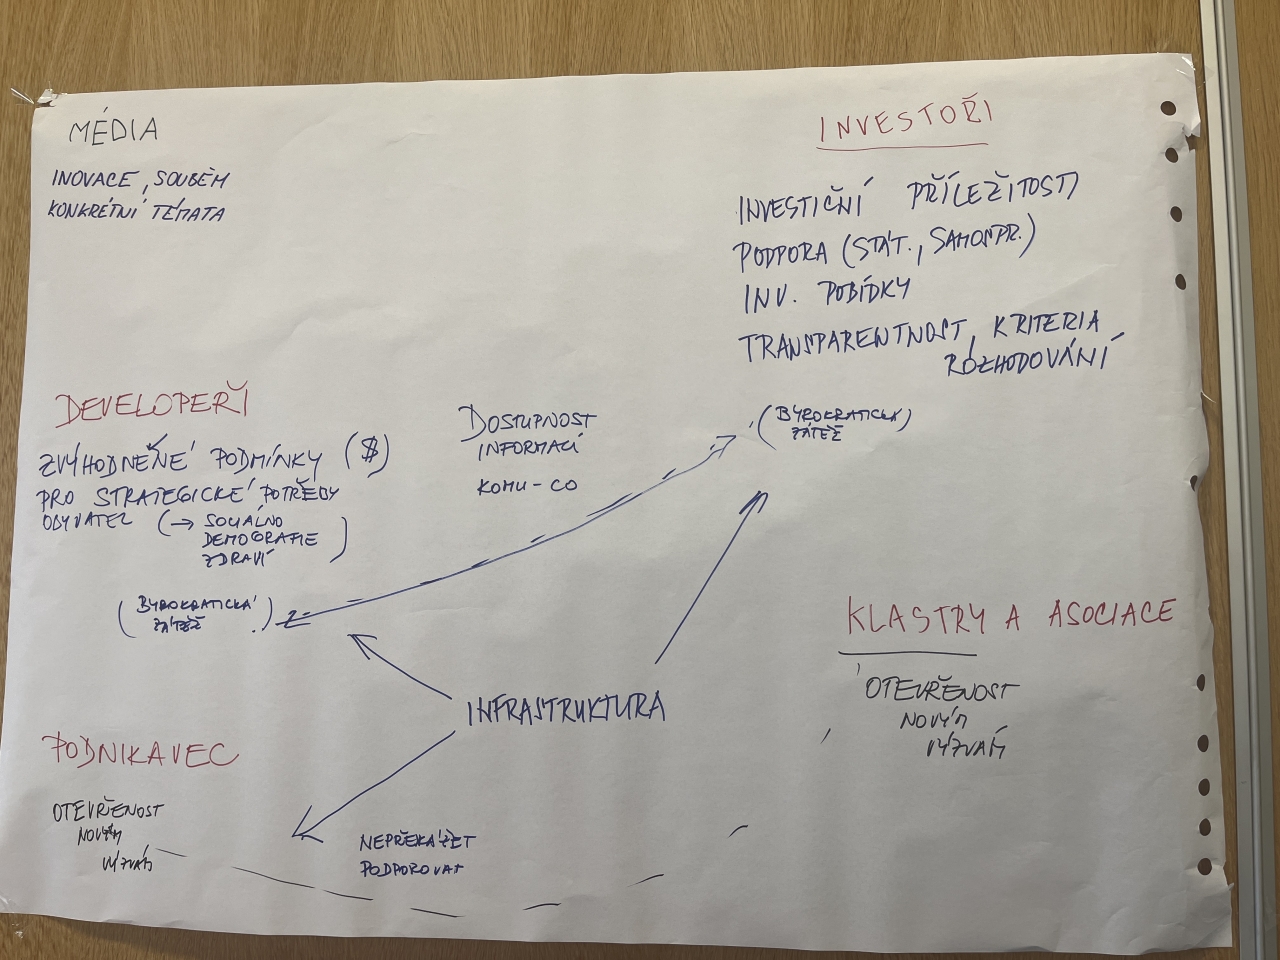 MÉDIA
INOVACE, SOUBĚH
KONKRÉTNÍ TÉMATA
INVESTOŘI
INVESTIČNÍ PŘÍLEŽITOSTI
PODPORA (STÁT., SAMOSPR.)
INV. POBÍDKY
TRANSPARENTNOST, KRITERIA
ROZHODOVÁNÍ
(BYROKRATICKÁ)
ZÁTĚŽ
DEVELOPEŘI
ZVÝHODNĚNÉ PODMÍNKY ($)
PRO STRATEGICKÉ POTŘEBY
OBYVATEL (→ SOCIÁLNO
DEMOGRAFIE
ZDRAVÍ)
(BYROKRATICKÁ
ZÁTĚŽ)
DOSTUPNOST
INFORMACÍ
KOMU - CO
INFRASTRUKTURA
KLASTRY A ASOCIACE
OTEVŘENOST
NOVÝM
VÝZVÁM
PODNIKAVEC
OTEVŘENOST
NOVÝM
VÝZVÁM
NEPŘEKÁŽET
PODPOROVAT